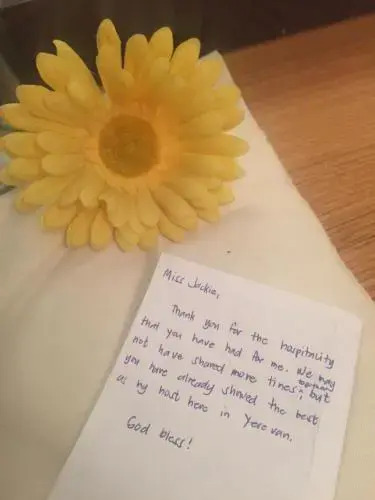 Miss Jackie,
Thank you for the hospitality
that you have had for me. We may
not have shared more times together, but
you have already showed the best
as my host here in Yerevan.
God bless!